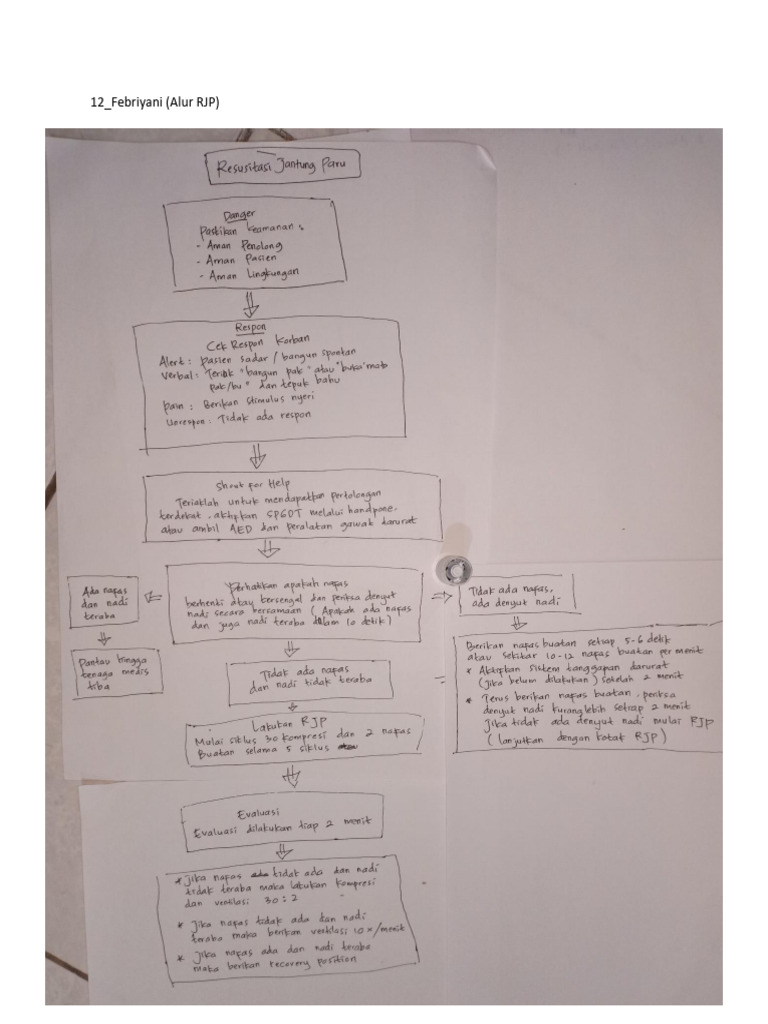 12_Febriyani (Alur RJP)
Resusitasi Jantung Paru
Danger
Pastikan keamanan :
- Aman Penolong
- Aman Pasien
- Aman Lingkungan
Respon
Cek Respon Korban
Alert : pasien sadar / bangun spontan
Verbal : Teriak "bangun pak" atau "buka mata
pak/bu" dan tepuk bahu
Pain : Berikan stimulus nyeri
Unrespon : Tidak ada respon
Shout for Help
Teriaklah untuk mendapatkan pertolongan
terdekat, aktifkan SPGDT melalui handpone,
atau ambil AED dan peralatan gawat darurat
Perhatikan apakah napas
berhenti atau tersengal dan periksa denyut
nadi secara bersamaan (Apakah ada napas
dan juga nadi teraba dalam 10 detik)
Ada napas
dan nadi
teraba
Pantau hingga
tenaga medis
tiba
Tidak ada napas,
ada denyut nadi
Berikan napas buatan setiap 5-6 detik
atau sekitar 10-12 napas buatan per menit
* Aktifkan sistem tanggapan darurat
(jika belum dilakukan) setelah 2 menit
* Terus berikan napas buatan, periksa
denyut nadi kurang lebih setiap 2 menit
Jika tidak ada denyut nadi mulai RJP
(lanjutkan dengan kotak RJP)
Tidak ada napas
dan nadi tidak teraba
Lakukan RJP
Mulai siklus 30 kompresi dan 2 napas
Buatan selama 5 siklus
Evaluasi
Evaluasi dilakukan tiap 2 menit
* Jika napas tidak ada dan nadi
tidak teraba maka lakukan kompresi
dan ventilasi 30 : 2
* Jika napas tidak ada dan nadi
teraba maka berikan ventilasi 10x/menit
* Jika napas ada dan nadi teraba
maka berikan recovery position